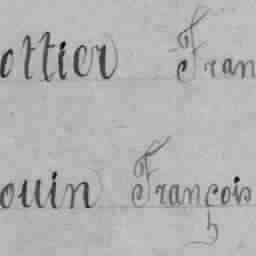 ottier Fran
ouin François